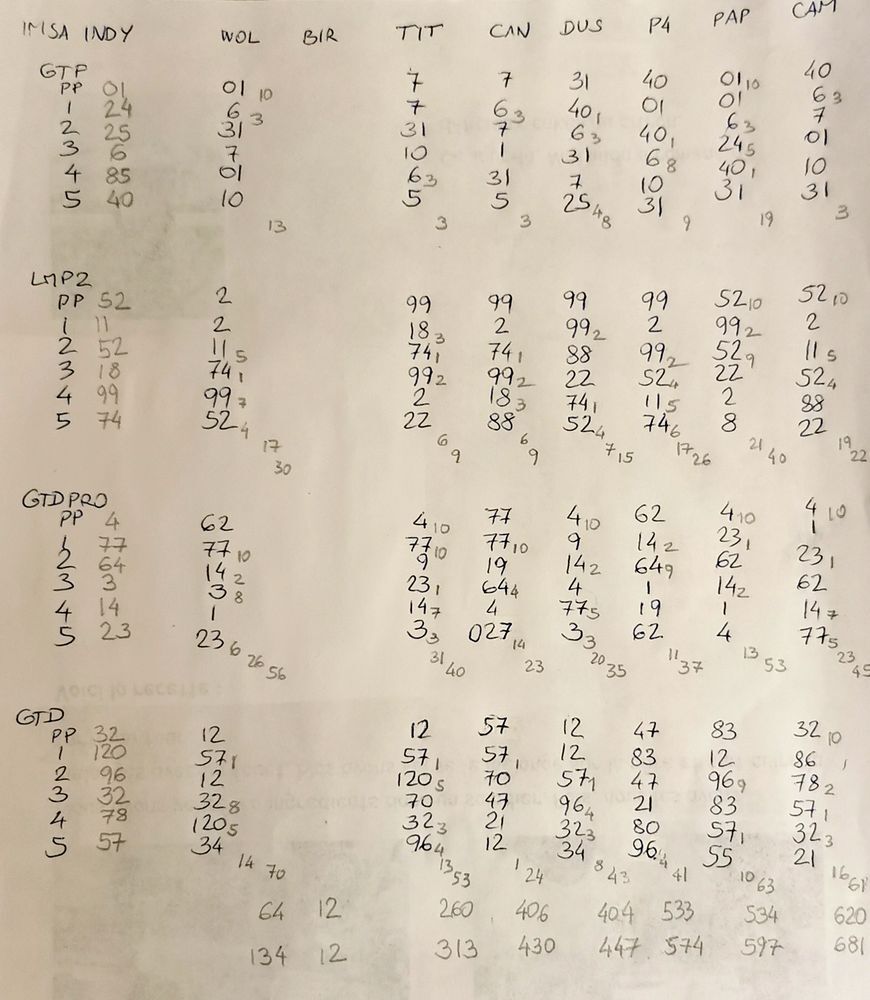 IMSA INDY WOL BIR TIT CAN DUS P4 PAP CAM
GTP
PP 01 01 10 7 7 31 40 01 10 40
1 24 6 3 7 6 3 40 1 01 01 6 3
2 25 31 31 7 6 3 40 1 6 3 7
3 6 7 10 1 31 6 8 24 5 01
4 85 01 6 3 31 7 10 40 1 10
5 40 10 5 5 25 4 31 31 31
13 3 3 8 9 19 3
LMP2
PP 52 2 99 99 99 99 52 10 52 10
1 11 2 18 3 2 99 2 2 99 2 2
2 52 11 5 74 1 74 1 88 99 2 52 9 11 5
3 18 74 1 99 2 99 2 22 52 4 22 52 4
4 99 99 7 2 18 3 74 1 11 5 2 88
5 74 52 4 22 88 52 4 74 6 8 22
17 6 6 7 17 21 19
30 9 9 15 26 40 22
GTDPRO
PP 4 62 4 10 77 4 10 62 4 10 4 10
1 77 77 10 77 10 77 10 9 14 2 23 1 1
2 64 14 2 9 19 14 2 64 9 62 23 1
3 3 3 8 23 1 64 4 4 1 14 2 62
4 14 1 14 7 4 77 5 19 1 14 7
5 23 23 6 3 3 027 14 3 3 62 4 77 5
26 31 20 11 13 23
56 40 23 35 37 53 45
GTD
PP 32 12 12 57 12 47 83 32 10
1 120 57 1 57 1 57 1 12 83 12 86 1
2 96 12 120 5 70 57 1 47 96 9 78 2
3 32 32 8 70 47 96 4 21 83 57 1
4 78 120 5 32 3 21 32 3 80 57 1 32 3
5 57 34 96 4 12 34 96 4 55 21
14 13 1 8 10 16
70 53 24 43 41 63 61
64 12 260 406 404 533 534 620
134 12 313 430 447 574 597 681